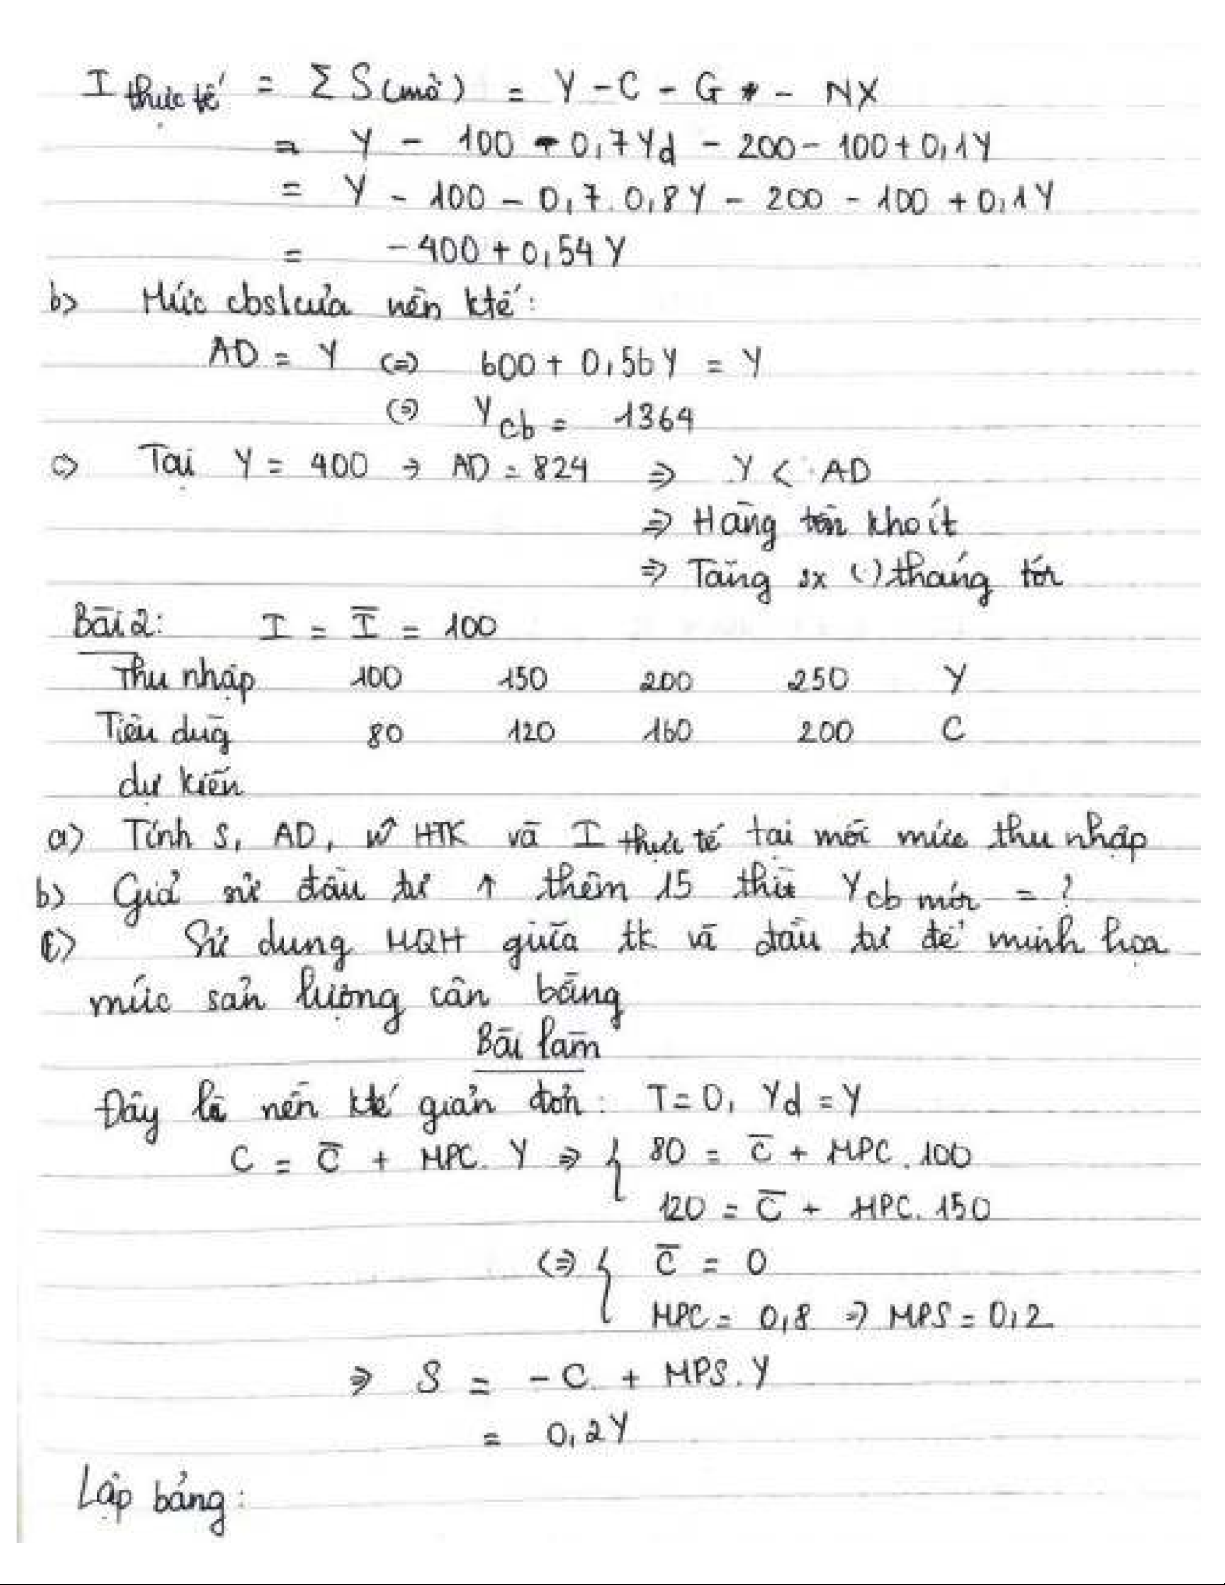 I thực tế = Σ S(mở) = Y - C - G - NX
= Y - 100 - 0,7Yd - 200 - 100 + 0,1Y
= Y - 100 - 0,7.0,8Y - 200 - 100 + 0,1Y
= -400 + 0,54Y
b) Mức cbsl của nền ktế:
AD = Y (=) 600 + 0,56Y = Y
(=) Ycb = 1364
c) Tại Y = 400 → AD = 824 ⇒ Y < AD
⇒ Hàng tồn kho ít
⇒ Tăng sx (.) tháng tới
Bài 2: I = I̅ = 100
Thu nhập 100 150 200 250 Y
Tiêu dùg 80 120 160 200 C
dự kiến
a) Tính S, AD, HTK và I thực tế tại mỗi mức thu nhập
b) Giả sử đầu tư ↑ thêm 15 thì Ycb mới = ?
c) Sử dụng MQH giữa tk và đầu tư để minh họa
mức sản lượng cân bằng
Bài làm
Đây là nền ktế giản đơn: T=0, Yd = Y
C = C̅ + MPC. Y ⇒ { 80 = C̅ + MPC. 100
120 = C̅ + MPC. 150
(⇒ { C̅ = 0
MPC = 0,8 ⇒ MPS = 0,2
⇒ S = -C + MPS. Y
= 0,2Y
Lập bảng: